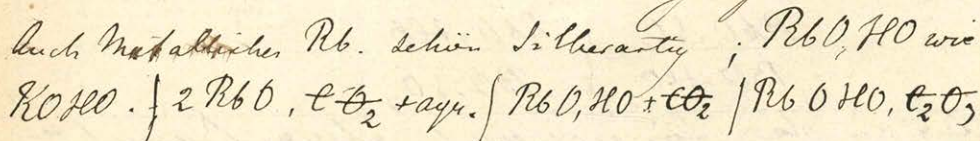 Auch Metallisches Rb. schön Silberartig ; RbO, HO wie
KOHO. | 2 RbO, C̶O̶₂ + aqu. | RbO, HO + C̶O̶₂ | RbO HO, C̶₂O̶₃